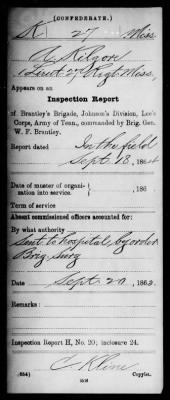 (CONFEDERATE.)
K 27 Miss.
C. Kilgore
1 Lieut 27 Regt. Miss.
Appears on an
Inspection Report
of Brantley's Brigade, Johnson's Division, Lee's
Corps, Army of Tenn., commanded by Brig. Gen.
W. F. Brantley.
Report dated In the field
Sept. 18, 1864
Date of muster of organi-
zation into service. , 186 .
Term of service
Absent commissioned officers accounted for:
By what authority
Sent to hospital by order
Brig. Surg
Date Sept. 20, 1862.
Remarks:
Inspection Report H, No. 20; inclosure 24.
C. Kline
(654) Copyist.